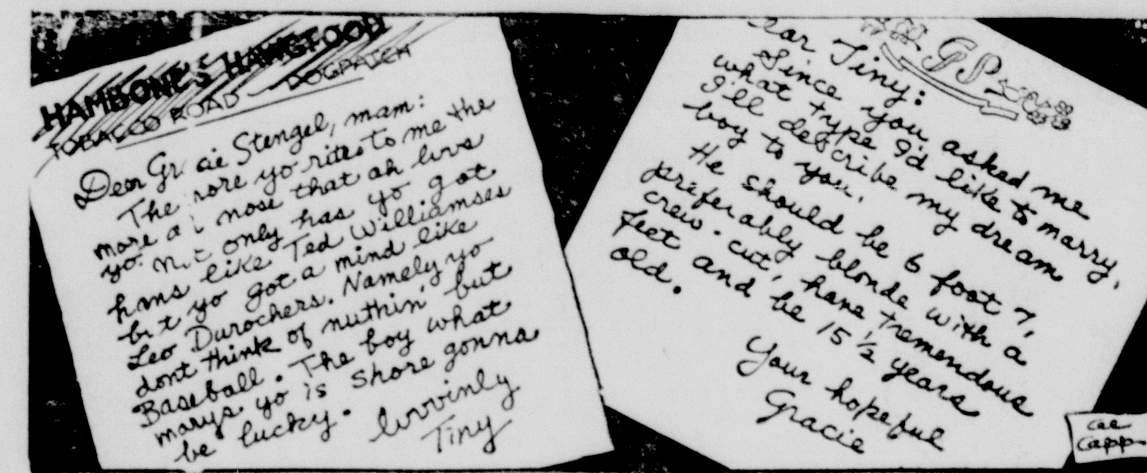 HAMBONE'S HAWGFOOD
TOBACCO ROAD DOGPATCH
Dear Gracie Stengel, mam:
The more yo rites to me the
more ah nose that ah luvs
yo. Not only has yo got
hans like Ted Williamses
but yo got a mind like
Leo Durochers. Namely yo
dont think of nuthin' but
Baseball. The boy what
marys yo is shore gonna
be lucky.
luvvinly
Tiny
GS
Dear Tiny:
Since you asked me
what type I'd like to marry,
I'll describe my dream
boy to you.
He should be 6 foot 7,
preferably blonde with a
crew-cut, have tremendous
feet and be 15 1/2 years
old.
Your hopeful
Gracie
Capp